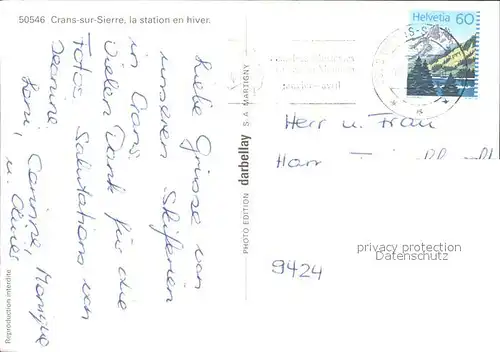 50546 Crans-sur-Sierre, la station en hiver.
Helvetia 60
Liebe Grüsse von
unseren Skiferien
in Crans.
Vielen Dank für die
Fotos. Salutations von
Jeanine, Corinne, Monique
u.
Herr u. Frau
Harr
9424
privacy protection
Datenschutz
PHOTO EDITION darbellay S. A. MARTIGNY
Reproduction interdite